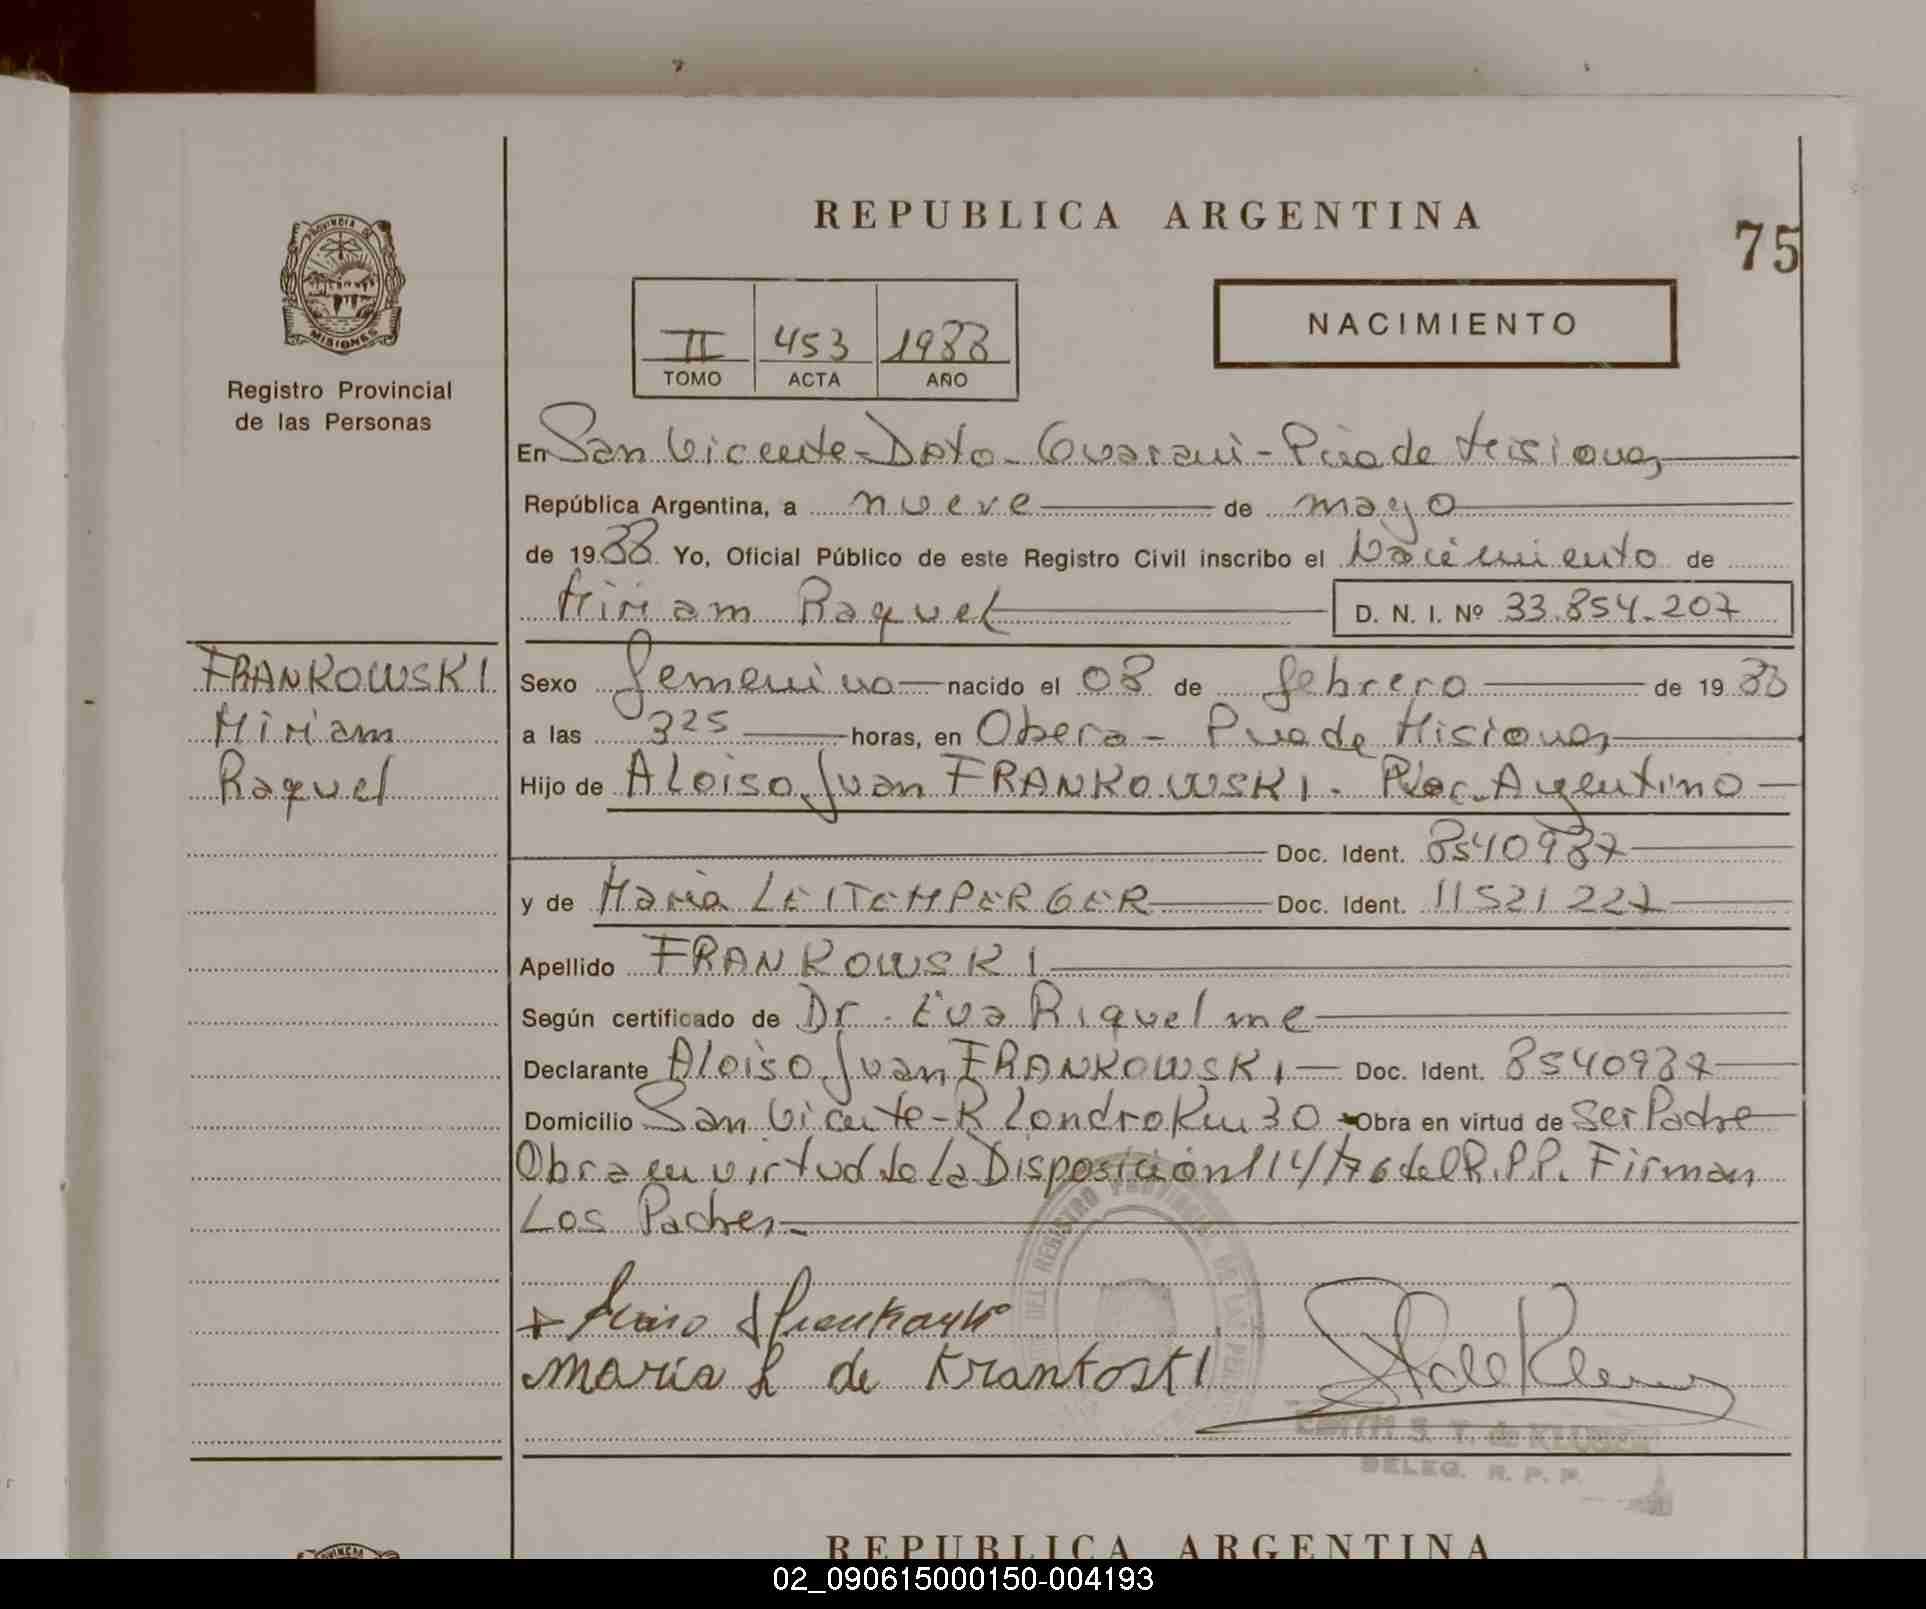 REPUBLICA ARGENTINA
75
PROVINCIA DE
MISIONES
Registro Provincial
de las Personas
II 453 1988
TOMO ACTA AÑO
NACIMIENTO
En San Vicente - Dpto - Guarani - Pcia de Misiones
República Argentina, a nueve de mayo
de 1988 Yo, Oficial Público de este Registro Civil inscribo el Nacimiento de
Miriam Raquel D. N. I. Nº 33.854.207
FRANKOWSKI
Miriam
Raquel
Sexo femenino nacido el 08 de febrero de 1988
a las 3 25 horas, en Obera - Pcia de Misiones
Hijo de Aloiso Juan FRANKOWSKI. Nac. Argentino
Doc. Ident. 8540987
y de Maria LEITEMPERGER Doc. Ident. 11521227
Apellido FRANKOWSKI
Según certificado de Dr. Eva Riquelme
Declarante Aloiso Juan FRANKOWSKI Doc. Ident. 8540987
Domicilio San Vicente - R Londro Km 30 - Obra en virtud de Ser Padre
Obra en virtud de la Disposición 114/76 del R.P.P. Firman
Los Padres -
DEL REGISTRO PROVINCIAL DE LAS PERSONAS
María L de Krankoski
EDITH S. T. de KLUBER
DELEG. R. P. P.
REPUBLICA ARGENTINA
02_090615000150-004193